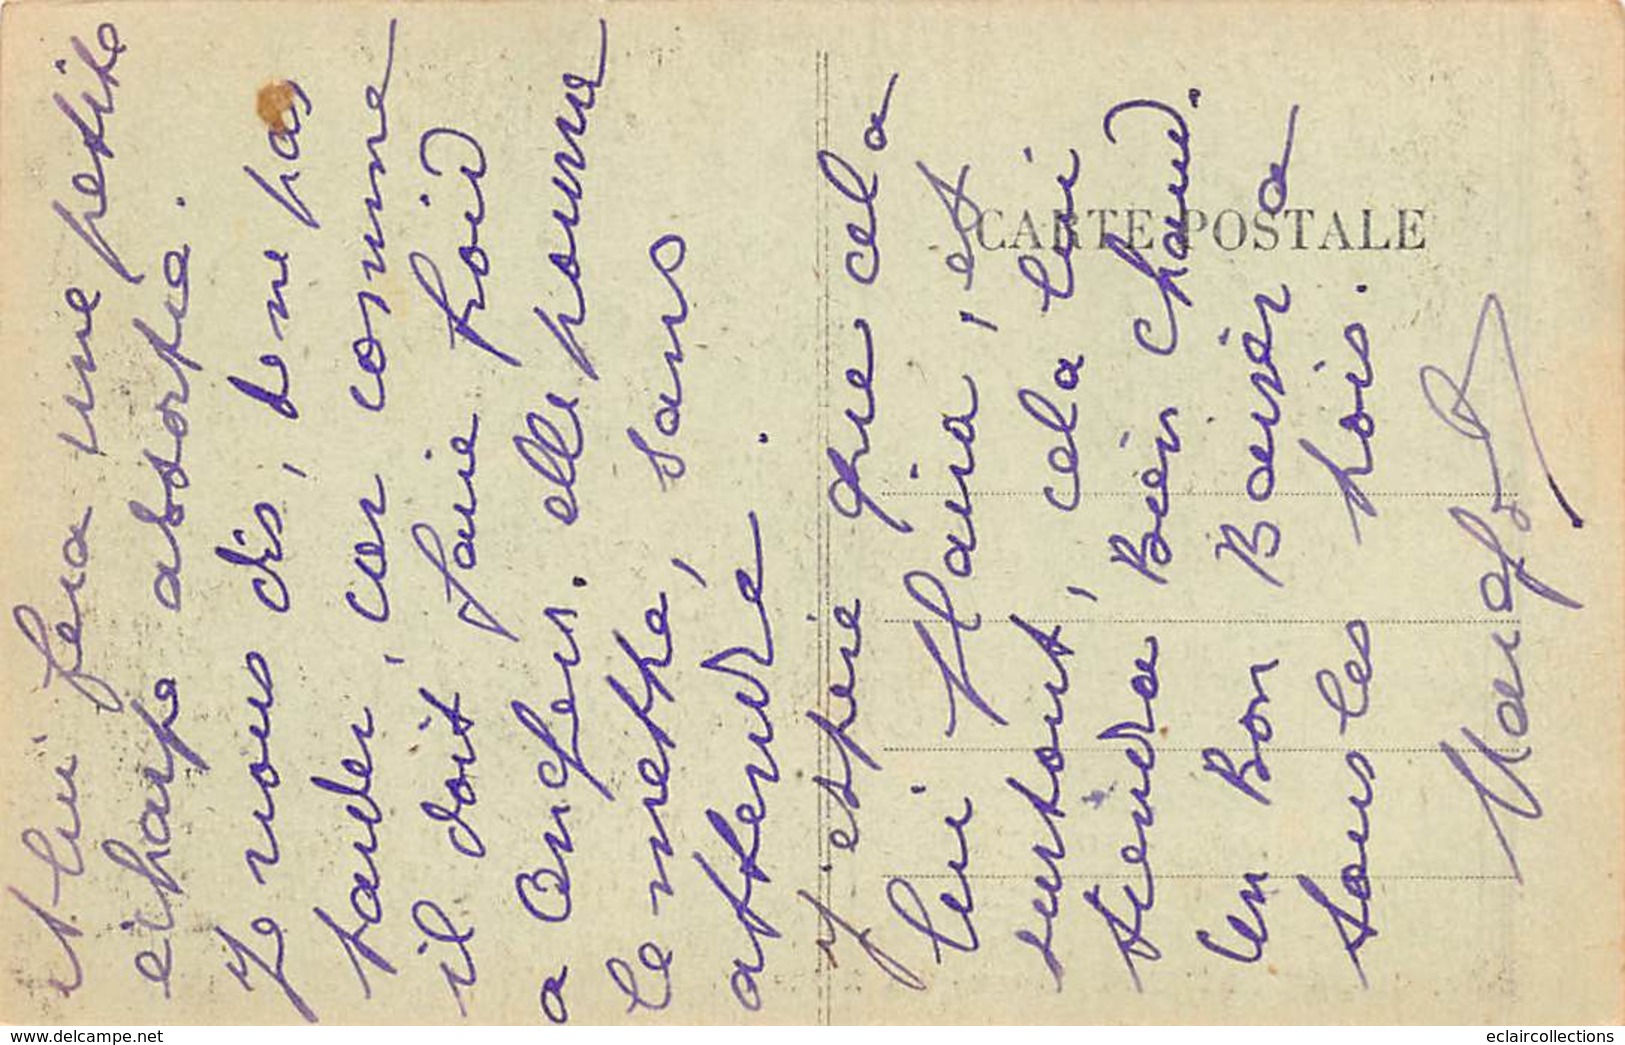 et lui fera une petite
écharpe absorpée.
Je vous dis, de ne pas
tarder, car comme
il doit faire froid
a Angers. elle pourra
le mettre, sans
attendre.
J'espère que cela
lui Plaira, et
surtout, cela lui
tiendra Bien chaud.
Un Bon Baiser a
tous les trois.
CARTE POSTALE
eclaircollections